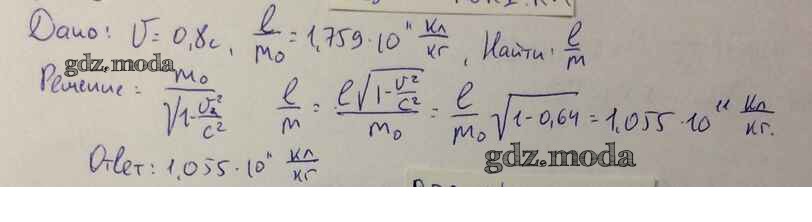 Дано: V = 0,8c, e/m₀ = 1,759·10¹¹ Кл/кг, Найти: e/m
gdz.moda
Решение: m₀/√(1-v²/c²) e/m = e√(1-v²/c²)/m₀ = e/m₀ √(1-0,64) = 1,055·10¹¹ Кл/кг.
Ответ: 1,055·10¹¹ Кл/кг
gdz.moda